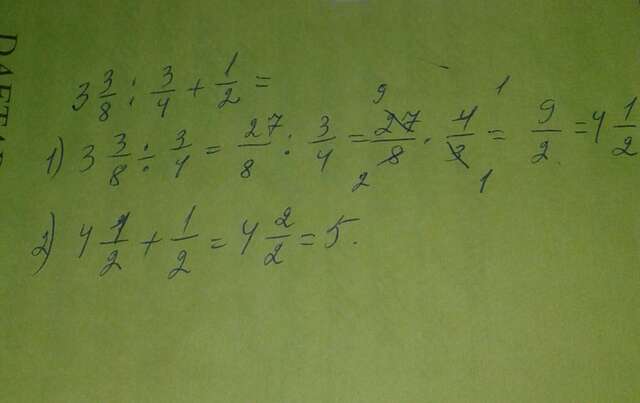 3 3/8 : 3/4 + 1/2 =
1) 3 3/8 : 3/4 = 27/8 : 3/4 = 27/8 · 4/3 = 9/2 = 4 1/2
2) 4 1/2 + 1/2 = 4 2/2 = 5.